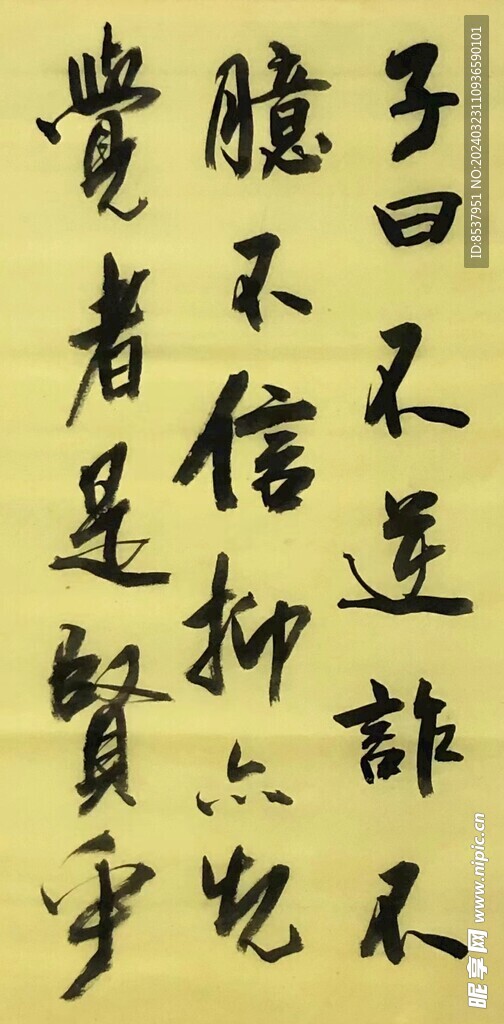 子曰不逆詐不
臆不信抑亦先
覺者是賢乎
ID:8537951 NO:20240323110936590101
昵享网 www.nipic.cn